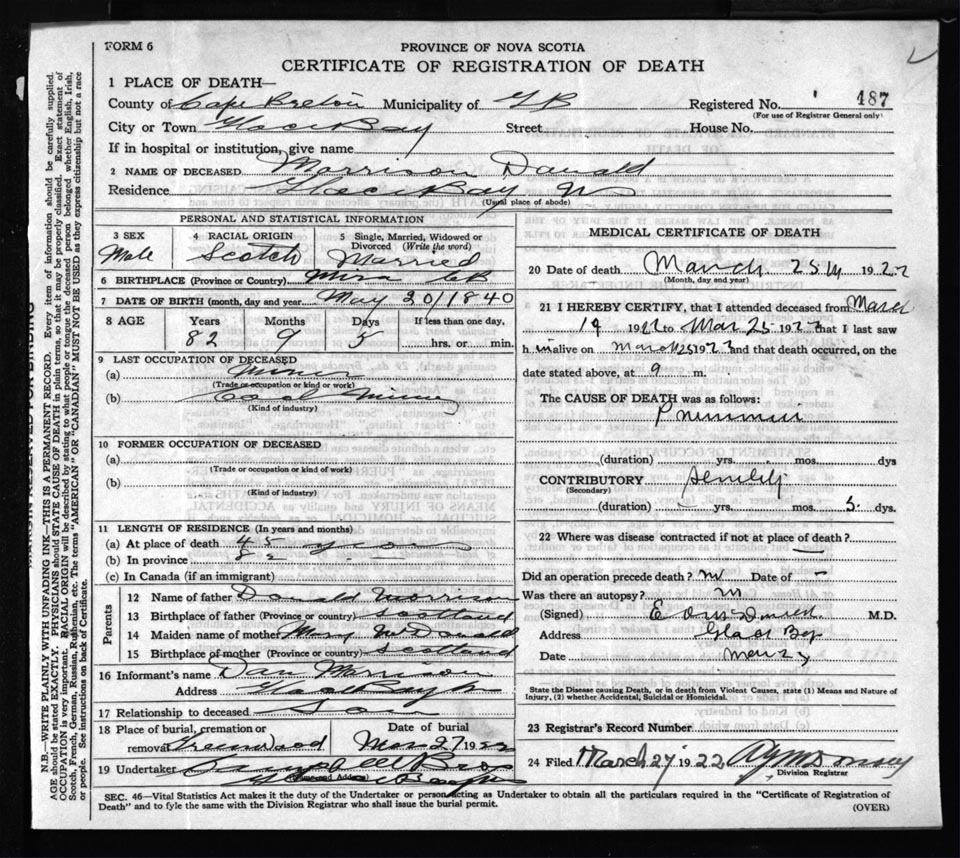 FORM 6
PROVINCE OF NOVA SCOTIA
CERTIFICATE OF REGISTRATION OF DEATH
1 PLACE OF DEATH—
County of Cape Breton Municipality of G B Registered No. 487
(For use of Registrar General only)
City or Town Glace Bay Street House No.
If in hospital or institution, give name
2 NAME OF DECEASED Morrison Donald
Residence Glace Bay N S
(Usual place of abode)
PERSONAL AND STATISTICAL INFORMATION
3 SEX Male
4 RACIAL ORIGIN Scotch
5 Single, Married, Widowed or Divorced (Write the word) Married
6 BIRTHPLACE (Province or Country) Mira CB
7 DATE OF BIRTH (month, day and year) May 20/1840
8 AGE Years Months Days If less than one day,
82 9 5 hrs. or min.
9 LAST OCCUPATION OF DECEASED
(a) Miner
(Trade or occupation or kind or work)
(b) Coal Mines
(Kind of industry)
10 FORMER OCCUPATION OF DECEASED
(a)
(Trade or occupation or kind of work)
(b)
(Kind of industry)
11 LENGTH OF RESIDENCE (In years and months)
(a) At place of death 45 years
(b) In province 82
(c) In Canada (if an immigrant)
Parents
12 Name of father Donald Morrison
13 Birthplace of father (Province or country) Scotland
14 Maiden name of mother Mary McDonald
15 Birthplace of mother (Province or country) Scotland
16 Informant's name Dan Morrison
Address Glace Bay
17 Relationship to deceased Son
18 Place of burial, cremation or removal Greenwood Date of burial Mar 27 1922
19 Undertaker Bros
MEDICAL CERTIFICATE OF DEATH
20 Date of death March 25th 1922
(Month, day and year)
21 I HEREBY CERTIFY, that I attended deceased from March
19 192 to Mar 25 192 that I last saw
h im alive on March 25 192 and that death occurred, on the
date stated above, at 9 m.
The CAUSE OF DEATH was as follows:
Pneumonia
(duration) yrs. mos. dys
CONTRIBUTORY Senility
(Secondary)
(duration) yrs. mos. 5 dys.
22 Where was disease contracted if not at place of death?
Did an operation precede death? no Date of –
Was there an autopsy? no
(Signed) M.D.
Address Glace Bay
Date
State the Disease causing Death, or in death from Violent Causes, state (1) Means and Nature of
Injury, (2) whether Accidental, Suicidal or Homicidal.
23 Registrar's Record Number
24 Filed March 27 1922
Division Registrar
SEC. 46—Vital Statistics Act makes it the duty of the Undertaker or person acting as Undertaker to obtain all the particulars required in the "Certificate of Registration of
Death" and to fyle the same with the Division Registrar who shall issue the burial permit.
(OVER)
MARGIN RESERVED FOR BINDING
N.B.—WRITE PLAINLY WITH UNFADING INK—THIS IS A PERMANENT RECORD. Every item of information should be carefully supplied.
AGE should be stated EXACTLY. PHYSICIANS should STATE CAUSE OF DEATH in plain terms, so that it may be properly classified. Exact statement of
OCCUPATION is very important. RACIAL ORIGIN will be described by stating to what people or tongue the deceased person belonged whether English, Irish,
Scotch, French, German, Russian, Ruthenian, etc. The terms "AMERICAN" OR "CANADIAN" MUST NOT BE USED as they express citizenship but not a race
or people. See instructions on back of Certificate.